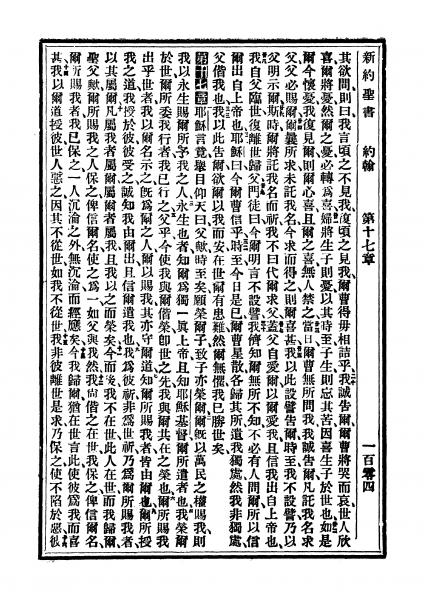 新約聖書　約翰　第十七章　一百零四
其欲問則曰我言頃之不見我復頃之見我爾曹得毋相詰乎我誠告爾爾曹將哭而哀世人欣
喜爾將憂然爾之憂必轉爲喜婦將生子則憂以其時至子生則忘其苦因喜生子於世也如是
爾今懷憂我復見爾則爾心喜且爾之喜無人禁之當日爾曹無所問我我誠告爾凡託我名求
父父必賜爾爾曩所求未託我名今求而得之則爾喜甚我以此設譬告爾時至我不設譬乃以
父明示爾斯時爾將託我名而祈我不曰代爾求父蓋父自愛爾以爾愛我且信我出自上帝也
我自父臨世復離世歸父門徒曰今爾明言不設譬我儕知爾無所不知不必有人問爾所以信
爾出自上帝也耶穌曰今爾曹信乎時至今日是已爾曹星散各歸其所遺我獨處然我非獨處
父偕我也我以此告爾欲爾以我而安在世爾有患難然爾無懼我已勝世矣
第十七章耶穌言竟舉目仰天曰父歟時至矣願榮爾子致子亦榮爾爾旣以萬民之權賜我則
我以永生賜爾所予我之人永生也者知爾爲獨一眞上帝且知耶穌基督爾所遣者也我榮爾
於世爾所委我行者我已行之父乎今使我與爾偕榮卽世之先我與爾共在之榮也爾所賜我
出乎世者我以爾名示之旣爲爾之人爾以賜我其亦守爾道知爾所賜我者皆由爾也爾所授
我之道我授於彼彼受之誠知我由爾出且信爾遣我也我爲彼祈非爲世祈乃爲爾所賜我者
以其屬爾凡屬我者屬爾屬爾者屬我且我以之而榮矣今而後我不在世此人在世而我歸爾
聖父歟爾所賜我之人保之俾信爾名使之爲一如父與我然我尚偕之在世我保之俾信爾名
爾所賜我者我已保之一人沉淪之外無沉淪而經應矣今我歸爾猶在世言此使彼爲我而喜
甚我以爾道授彼世人惡之因其不從世如我不從世我非彼離世是求乃保之使不陷於惡彼